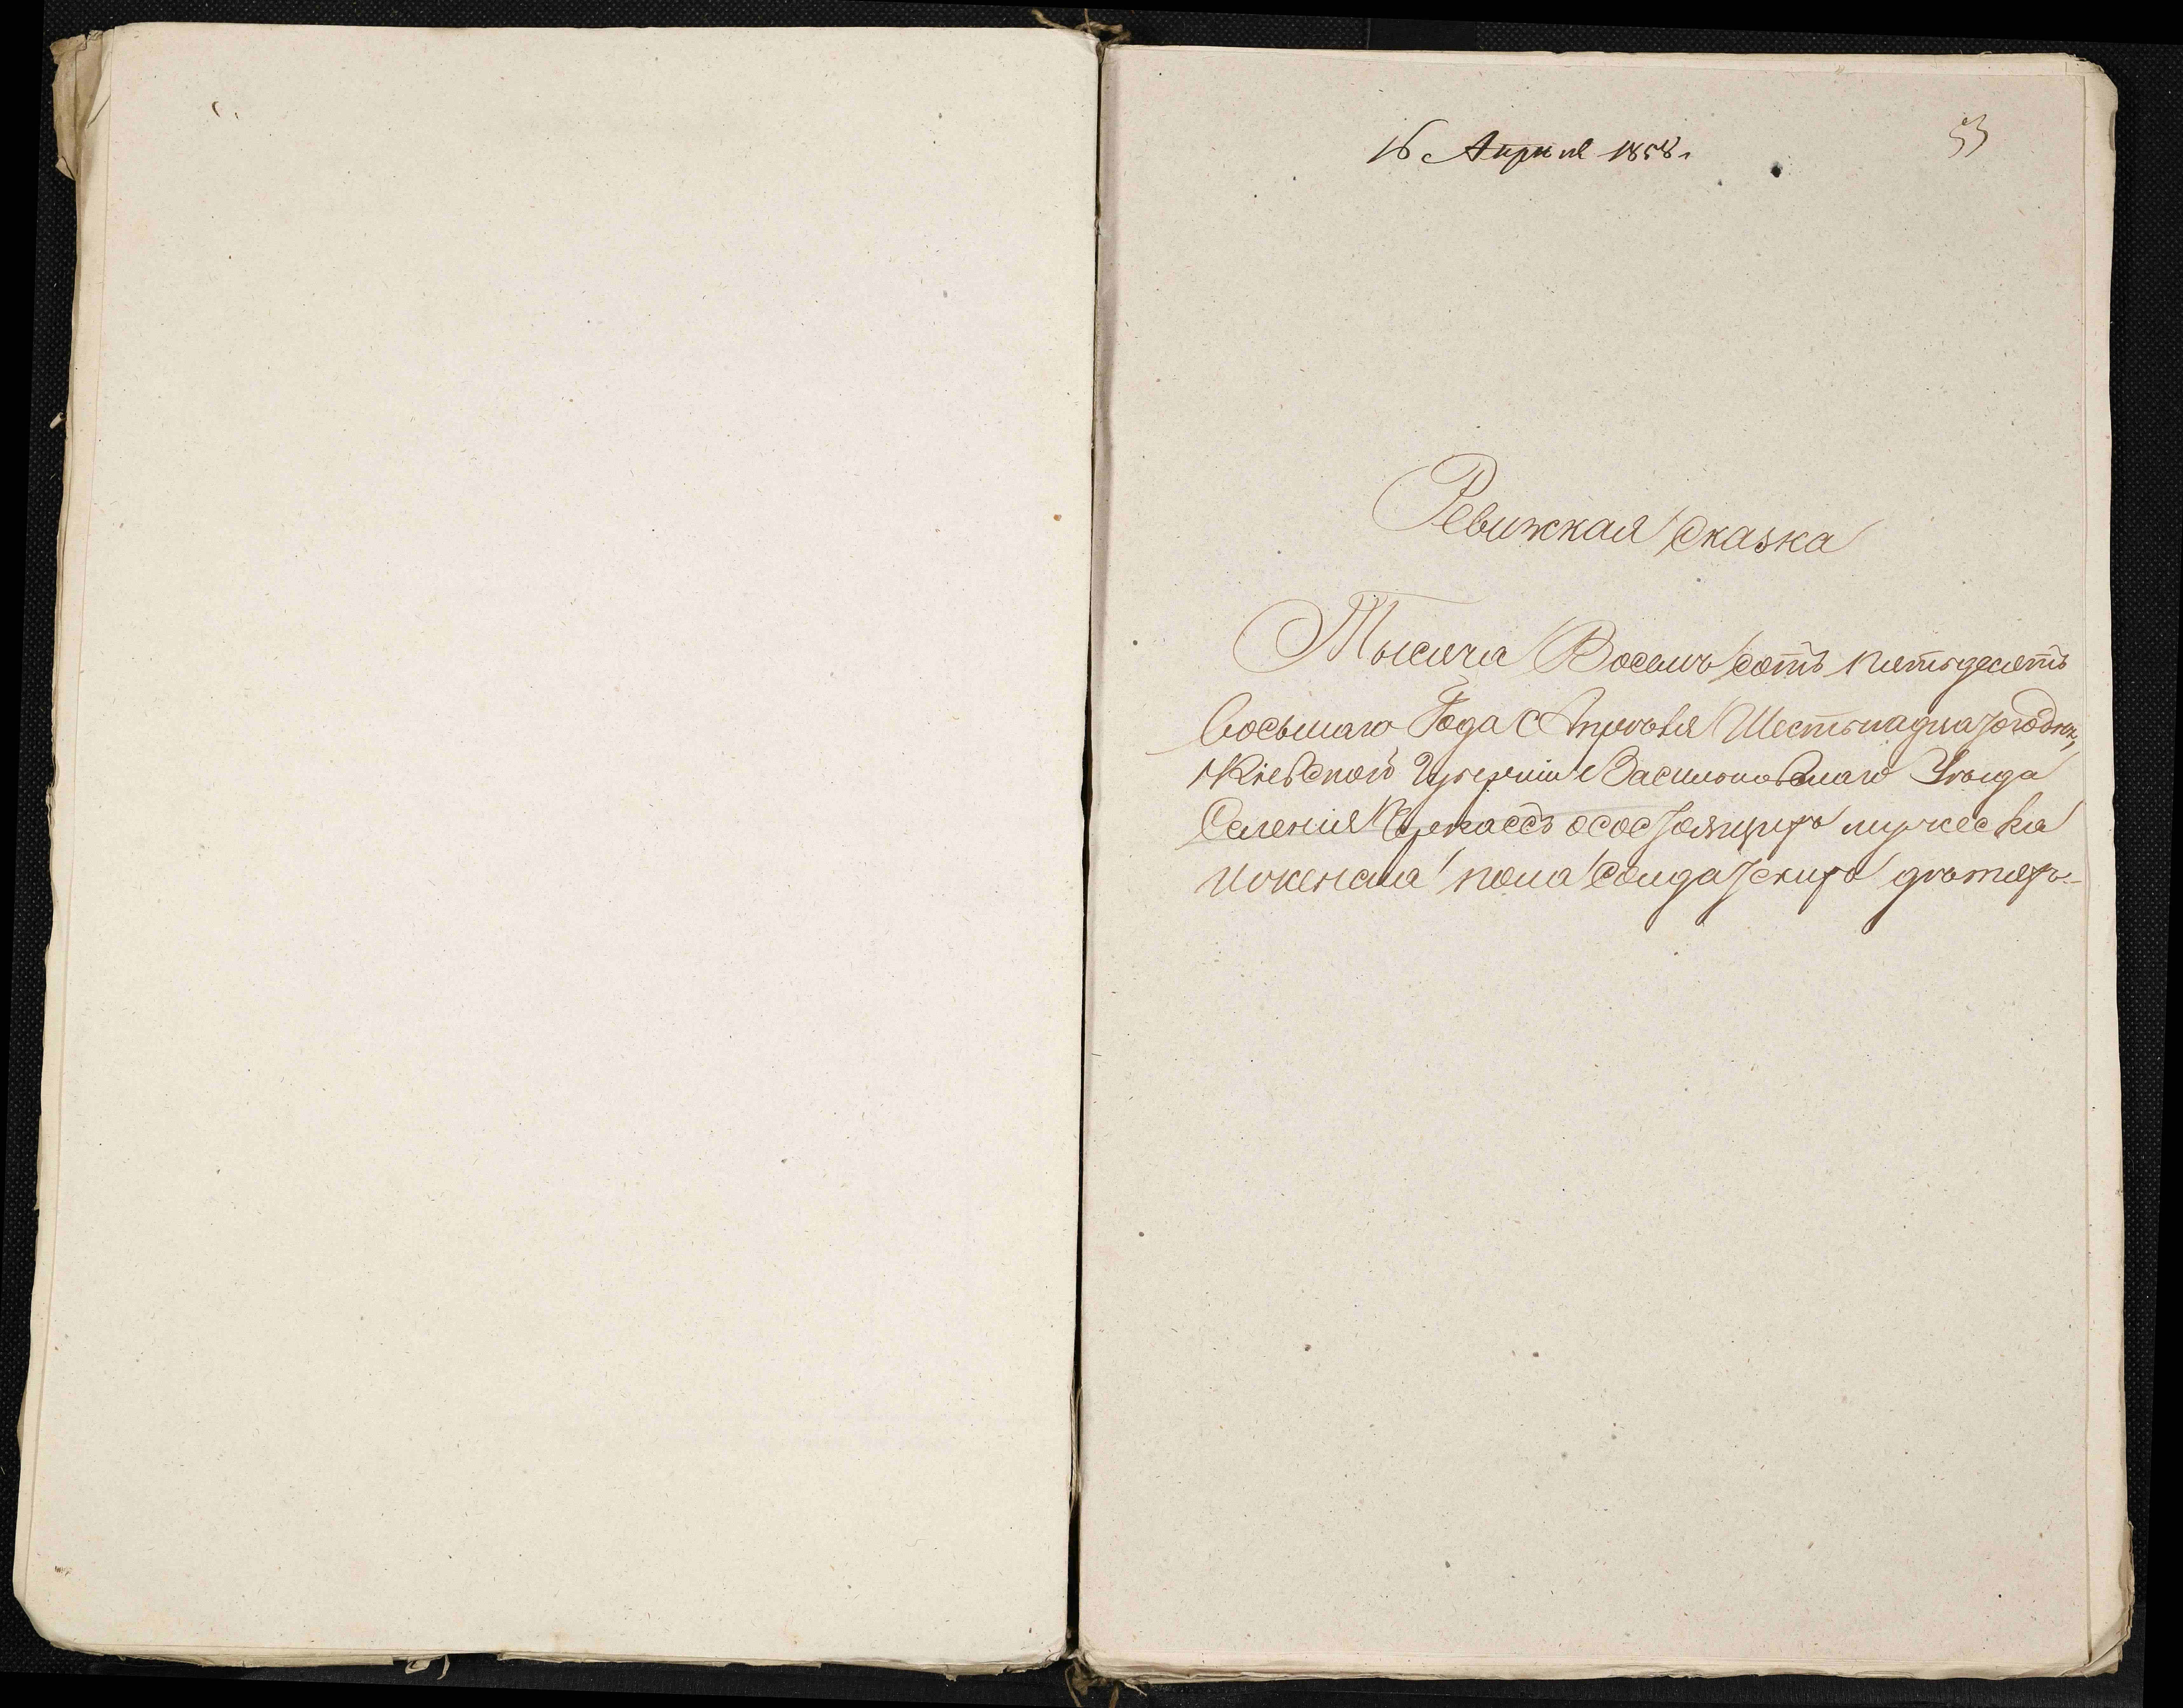 16 Апреля 1858.
53
Ревижкая Сказка
Тысяча Восемь сотъ пятьдесятъ
восьмаго Года Апреля Шестьнадцатого дня,
Кіевской Губерніи Васильковскаго Уезда
Селенія Черкассъ осостоящихъ мужеска
иженска пола Солдатскихъ детяхъ